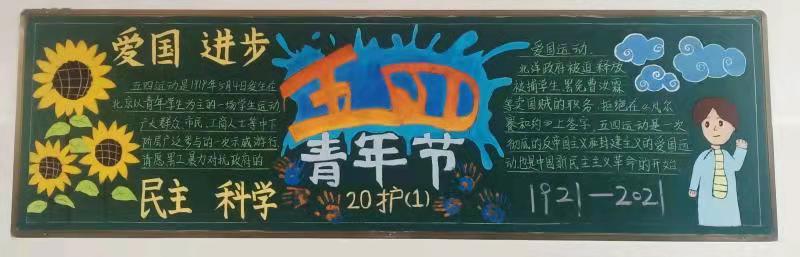 爱国 进步
五四运动是1919年5月4日发生在
北京以青年学生为主的一场学生运动
广大群众、市民、工商人士等中下
阶层广泛参与的一次示威游行、
请愿、罢工、暴力对抗政府的
民主 科学
五四
青年节
20护(1)
爱国运动.
北洋政府被迫释放
被捕学生,罢免曹汝霖
等卖国贼的职务,拒绝在凡尔
赛和约上签字,五四运动是一次
彻底的反帝国主义和封建主义的爱国运
动,也是中国新民主主义革命的开始
1921—2021